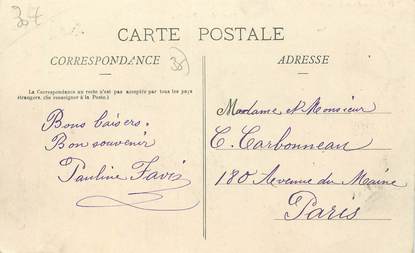 30f
CARTE POSTALE
CORRESPONDANCE
30
ADRESSE
La Correspondance au recto n'est pas acceptée par tous les pays
étrangers. (Se renseigner à la Poste.)
Bons baisers.
Bon souvenir
Pauline Favis
Madame et Monsieur
C. Carbonneau
180 Avenue du Maine
Paris